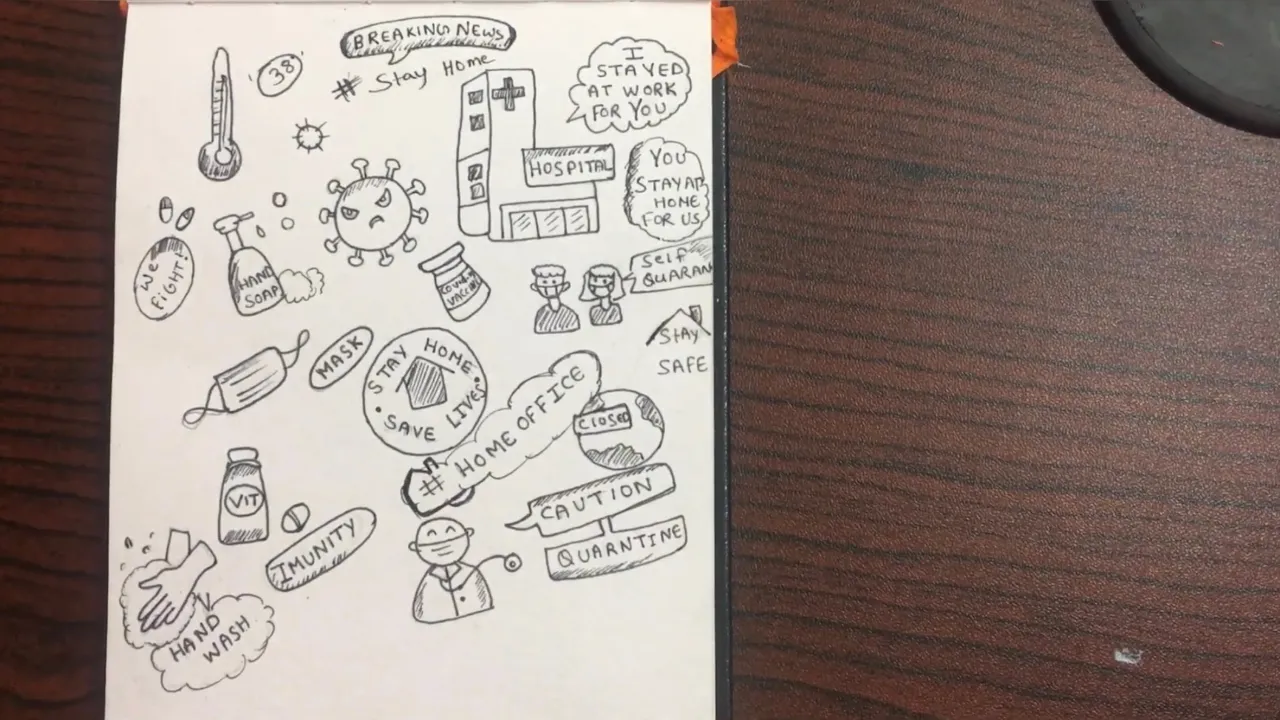 BREAKING NEWS
# Stay Home
38°
I
STAYED
AT WORK
FOR YOU
HOSPITAL
YOU
STAY AT
HOME
FOR US
We
FIGHT!
HAND
SOAP
COVID-19
VACCINE
Self
QUARAN
Stay
SAFE
MASK
STAY HOME
SAVE LIVES
# HOME OFFICE
CLOSED
VIT
CAUTION
QUARNTINE
IMUNITY
HAND
WASH